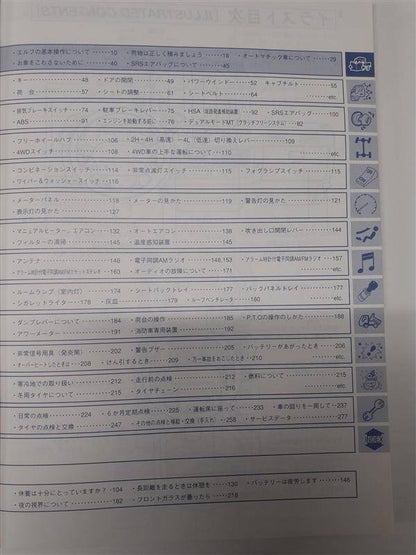 イラスト目次 [ILLUSTRATED CONTENTS]
・エルフの基本操作について・・・・・10 ・荷物は正しく積みましょう・・・・・18 ・オートマチック車について・・・・・29
・お車をこわさないために・・・・・40 ・SRSエアバッグについて・・・・・45
・キー・・・・・48 ・ドアの開閉・・・・・49 ・パワーウインドー・・・・・52 キャブチルト・・・・・55
・荷 台・・・・・57 ・シートの調整・・・・・61 ・シートベルト・・・・・64 etc.
・排気ブレーキスイッチ・・・・・74 ・駐車ブレーキレバー・・・・・75 ・HSA(坂路発進補助装置)・・・・・92 ・SRSエアバッグ・・・・・100
・ABS・・・・・91 ・エンジンを始動する前に・・・・・76 ・デュアルモードMT(クラッチフリーシステム)・・・・・82
・フリーホイールハブ・・・・・106 ・2H-4H(高速)-4L(低速)切り換えレバー・・・・・109
・4WDスイッチ・・・・・108 ・4WD車の上手な運転について・・・・・110 etc.
・コンビネーションスイッチ・・・・・114 ・非常点滅灯スイッチ・・・・・115 ・フォグランプスイッチ・・・・・116
・ワイパー&ウォッシャースイッチ・・・・・116
・メーターパネル・・・・・118 ・メーターの見かた・・・・・119 ・警告灯の見かた・・・・・121
・表示灯の見かた・・・・・127
・マニュアルヒーター、エアコン・・・・・132 ・オートエアコン・・・・・138 ・吹き出し口開閉レバー・・・・・144
・フィルターの清掃・・・・・145 ・温度感知装置・・・・・145
・アンテナ・・・・・146 ・電子同調AMラジオ・・・・・148,153 ・アラーム時計付電子同調AM/FMラジオ・・・・・157
・アラーム時計付電子同調AM/FMカセットステレオ・・・・・160 ・オーディオの故障について・・・・・171 etc.
・ルームランプ(室内灯)・・・・・174 ・シートバックトレイ・・・・・177 ・バックパネルトレイ・・・・・177
・シガレットライター・・・・・178 ・灰皿・・・・・179 ・ルーフベンチレーター・・・・・180 etc.
・ダンプレバーについて・・・・・184 ・荷台の操作・・・・・185 ・P.T.Oの操作のしかた・・・・・188
・アワーメーター・・・・・191 ・消防車専用装置・・・・・192
・非常信号用具(発炎筒)・・・・・202 ・警告ブザー・・・・・205 ・バッテリーがあがったとき・・・・・206
・オーバーヒートしたときは・・・・・208 ・けん引するとき・・・・・209 ・万一事故をおこしたとき・・・・・210 etc.
・寒冷地での取り扱い・・・・・212 ・走行前の点検・・・・・212 ・燃料について・・・・・215
・冬用タイヤについて・・・・・215 ・タイヤチェーン・・・・・216 etc.
・日常の点検・・・・・224 ・6か月定期点検・・・・・225 ・運転席に座って・・・・・233 ・車の回りを一周して・・・・・237
・タイヤの点検と交換・・・・・247 ・その他の点検と補給・交換(手入れ)・・・・・258 ・サービスデータ・・・・・277
・休養は十分にとっていますか?・104 ・長距離を走るときは休憩を・・・・・130 ・バッテリーは疲労します・・・・・146
・夜の視界について・・・・・182 ・フロントガラスが曇ったら・・・・・218